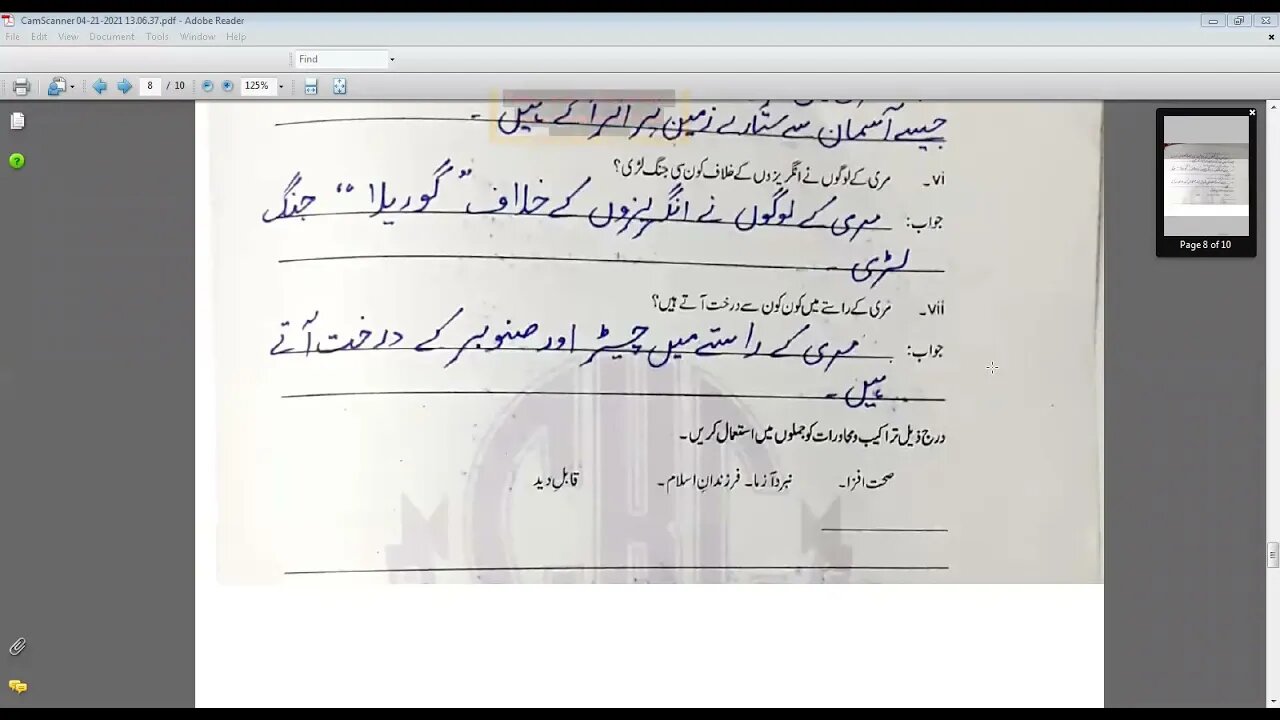 CamScanner 04-21-2021 13.06.37.pdf - Adobe Reader
File Edit View Document Tools Window Help
Find
8 / 10 125%
جیسے آسمان سے ستارے زمین پر اتر آئے ہیں ۔
vi۔ مری کے لوگوں نے انگریزوں کے خلاف کون سی جنگ لڑی؟
جواب: مری کے لوگوں نے انگریزوں کے خلاف "گوریلا" جنگ
لڑی ۔
vii۔ مری کے راستے میں کون کون سے درخت آتے ہیں؟
جواب: مری کے راستے میں چیڑ اور صنوبر کے درخت آتے
ہیں ۔
درج ذیل تراکیب و محاورات کو جملوں میں استعمال کریں ۔
صحت افزا۔ نبرد آزما۔ فرزندانِ اسلام ۔ قابلِ دید
Page 8 of 10